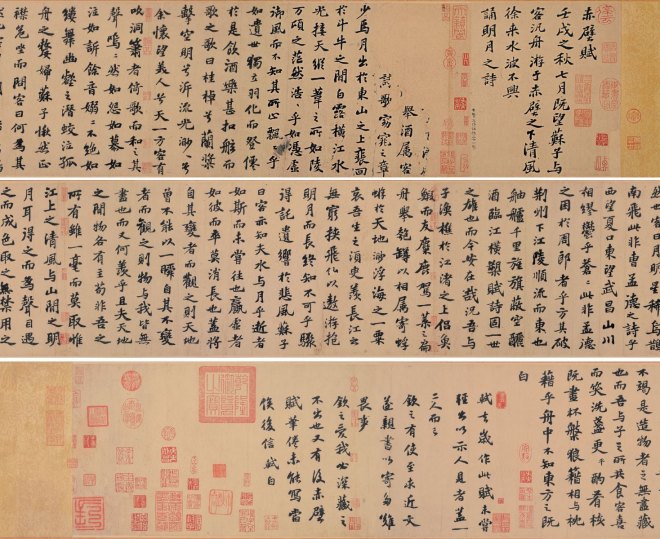 赤壁賦
壬戌之秋七月既望蘇子与
客汎舟游于赤壁之下清風
徐來水波不興
舉酒屬客
誦明月之詩
謌窈窕之章
少焉月出於東山之上裴回
於斗牛之間白露橫江水
光接天縱一葦之所如陵
万頃之茫然浩浩乎如馮虛
御風而不知其所止飄飄乎
如遺世獨立羽化而登僊
於是飲酒樂甚扣舷而
歌之歌曰桂棹兮蘭槳
擊空明兮泝流光渺渺兮
余懷望美人兮天一方客有
吹洞簫者倚歌而和之其
聲嗚嗚然如怨如慕如
泣如訴餘音嫋嫋不絕如
縷舞幽壑之潛蛟泣孤
舟之嫠婦蘇子愀然正
襟危坐而問客曰何為其
然也客曰月明星稀烏鵲
南飛此非曹孟德之詩乎
西望夏口東望武昌山川
相繆鬱乎蒼蒼此非孟德
之困於周郎者乎方其破
荊州下江陵順流而東也
舳艫千里旌旗蔽空釃
酒臨江橫槊賦詩固一世
之雄也而今安在哉況吾与
子漁樵於江渚之上侶魚
鰕而友麋鹿駕一葉之扁
舟舉匏樽以相屬寄蜉
蝣於天地渺浮海之一粟
哀吾生之須臾羨長江之
無窮挾飛仙以遨遊抱
明月而長終知不可乎驟
得託遺響於悲風蘇子
曰客亦知夫水与月乎逝者
如斯而未嘗往也贏虛者
如彼而卒莫消長也蓋將
自其變者而觀之則天地
曾不能以一瞬自其不變
者而觀之則物与我皆無
盡也而又何羨乎且夫天地
之間物各有主苟非吾之
所有雖一毫而莫取惟
江上之清風与山間之明
月耳得之而為聲目遇
之而成色取之無禁用之
不竭是造物者之無盡藏
也而吾与子之所共食客喜
而笑洗盞更酌肴核
既盡杯盤狼藉相与枕
藉乎舟中不知東方之既
白
軾去歲作此賦未嘗
輕出以示人見者蓋一
二人而已
欽之有使至求近文
遂親書以寄多難
畏事
欽之愛我必深藏之
不出也又有後赤壁
賦筆倦未能寫當
俟後信軾白